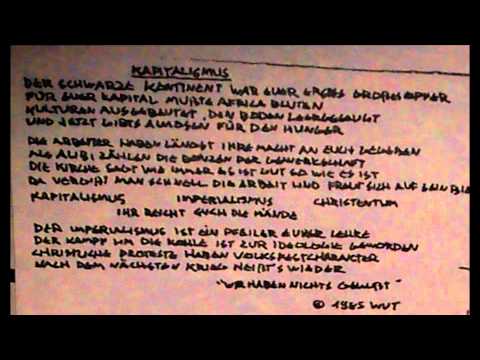 KAPITALISMUS
DER SCHWARZE KONTINENT WAR EUER ERSTES GROßES OPFER
FÜR EUER KAPITAL MUßTE AFRICA BLUTEN
KULTUREN AUSGEBEUTET, DEN BODEN LEERGESAUGT
UND JETZT GIBTS ALMOSEN FÜR DEN HUNGER
DIE ARBEITER HABEN LÄNGST IHRE MACHT AN EUCH
ALS ALIBI ZÄHLEN DIE BONZEN DER GEWERKSCHAFT
DIE KIRCHE SAGT WIE IMMER ES IST GUT SO WIE ES IST
DA VERGIßT MAN SCHNELL DIE ARBEIT UND FREUT SICH AUF SEIN BIER
KAPITALISMUS IMPERIALISMUS CHRISTENTUM
IHR REICHT EUCH DIE HÄNDE
DER IMPERIALISMUS IST EIN PFEILER EURER LEHRE
DER KAMPF UM DIE KOHLE IST ZUR IDEOLOGIE GEWORDEN
CHRISTLICHE PROTESTE HABEN VOLKSFESTCHARAKTER
NACH DEM NÄCHSTEN KRIEG HEIßT'S WIEDER
"WIR HABEN NICHTS GEWUßT"
© 1985 WUT